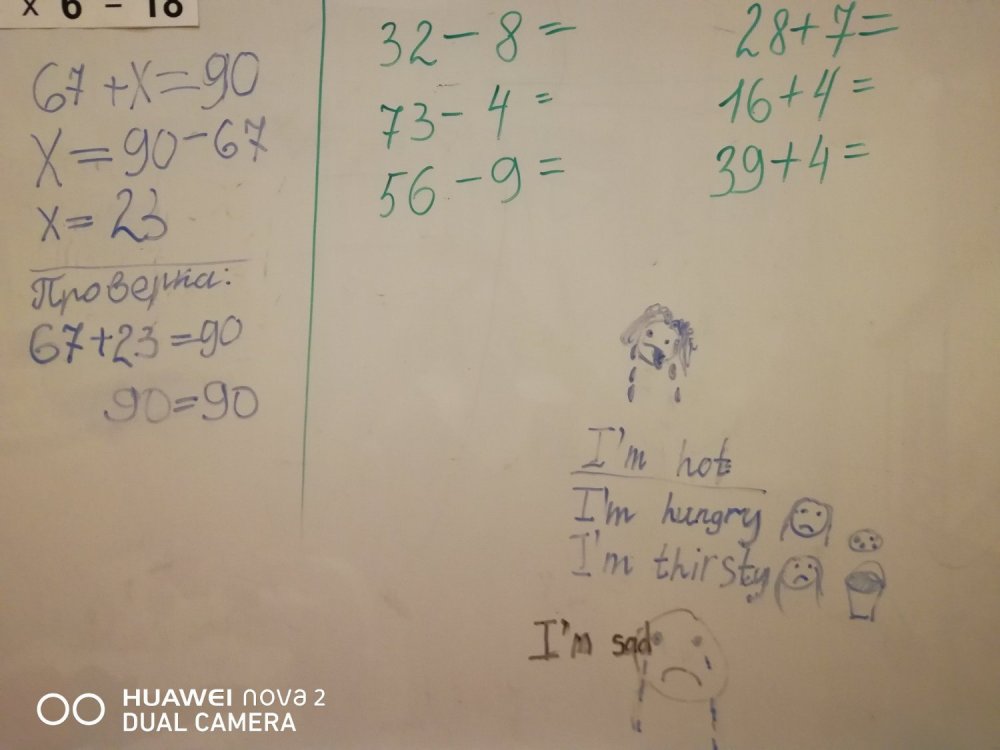 x 6 - 18
67 + x = 90
x = 90 - 67
x = 23
Проверка:
67+23 = 90
90 = 90
32 - 8 =
73 - 4 =
56 - 9 =
28 + 7 =
16 + 4 =
39 + 4 =
I'm hot
I'm hungry
I'm thirsty
I'm sad
HUAWEI nova 2
DUAL CAMERA